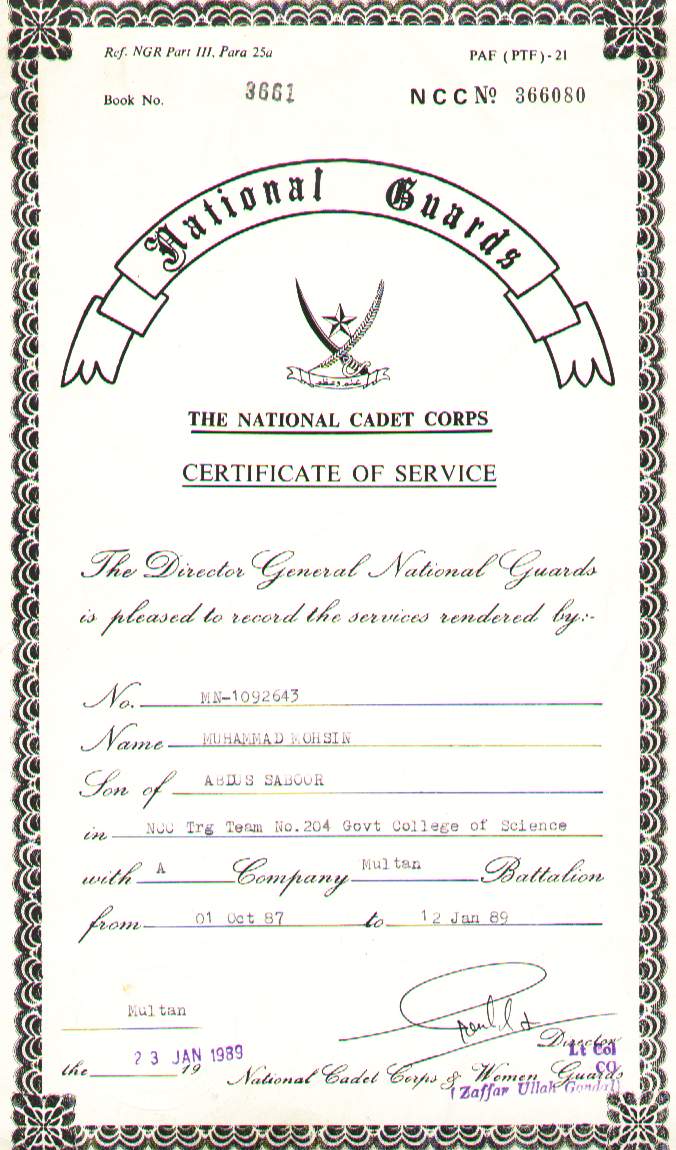 Ref. NGR Part III, Para 25a
PAF (PTF)-21
Book No. 3661
NCC Nº 366080
National Guards
THE NATIONAL CADET CORPS
CERTIFICATE OF SERVICE
The Director General National Guards
is pleased to record the services rendered by:-
No. MN-1092643
Name MUHAMMAD MOHSIN
Son of ABDUS SABOUR
in NCC Trg Team No.204 Govt College of Science
with A Company Multan Battalion
from 01 Oct 87 to 12 Jan 89
Multan
Director
Lt Col
the 23 JAN 1989 19
CO
National Cadet Corps & Women Guards
(Zaffar Ullah Gondal)